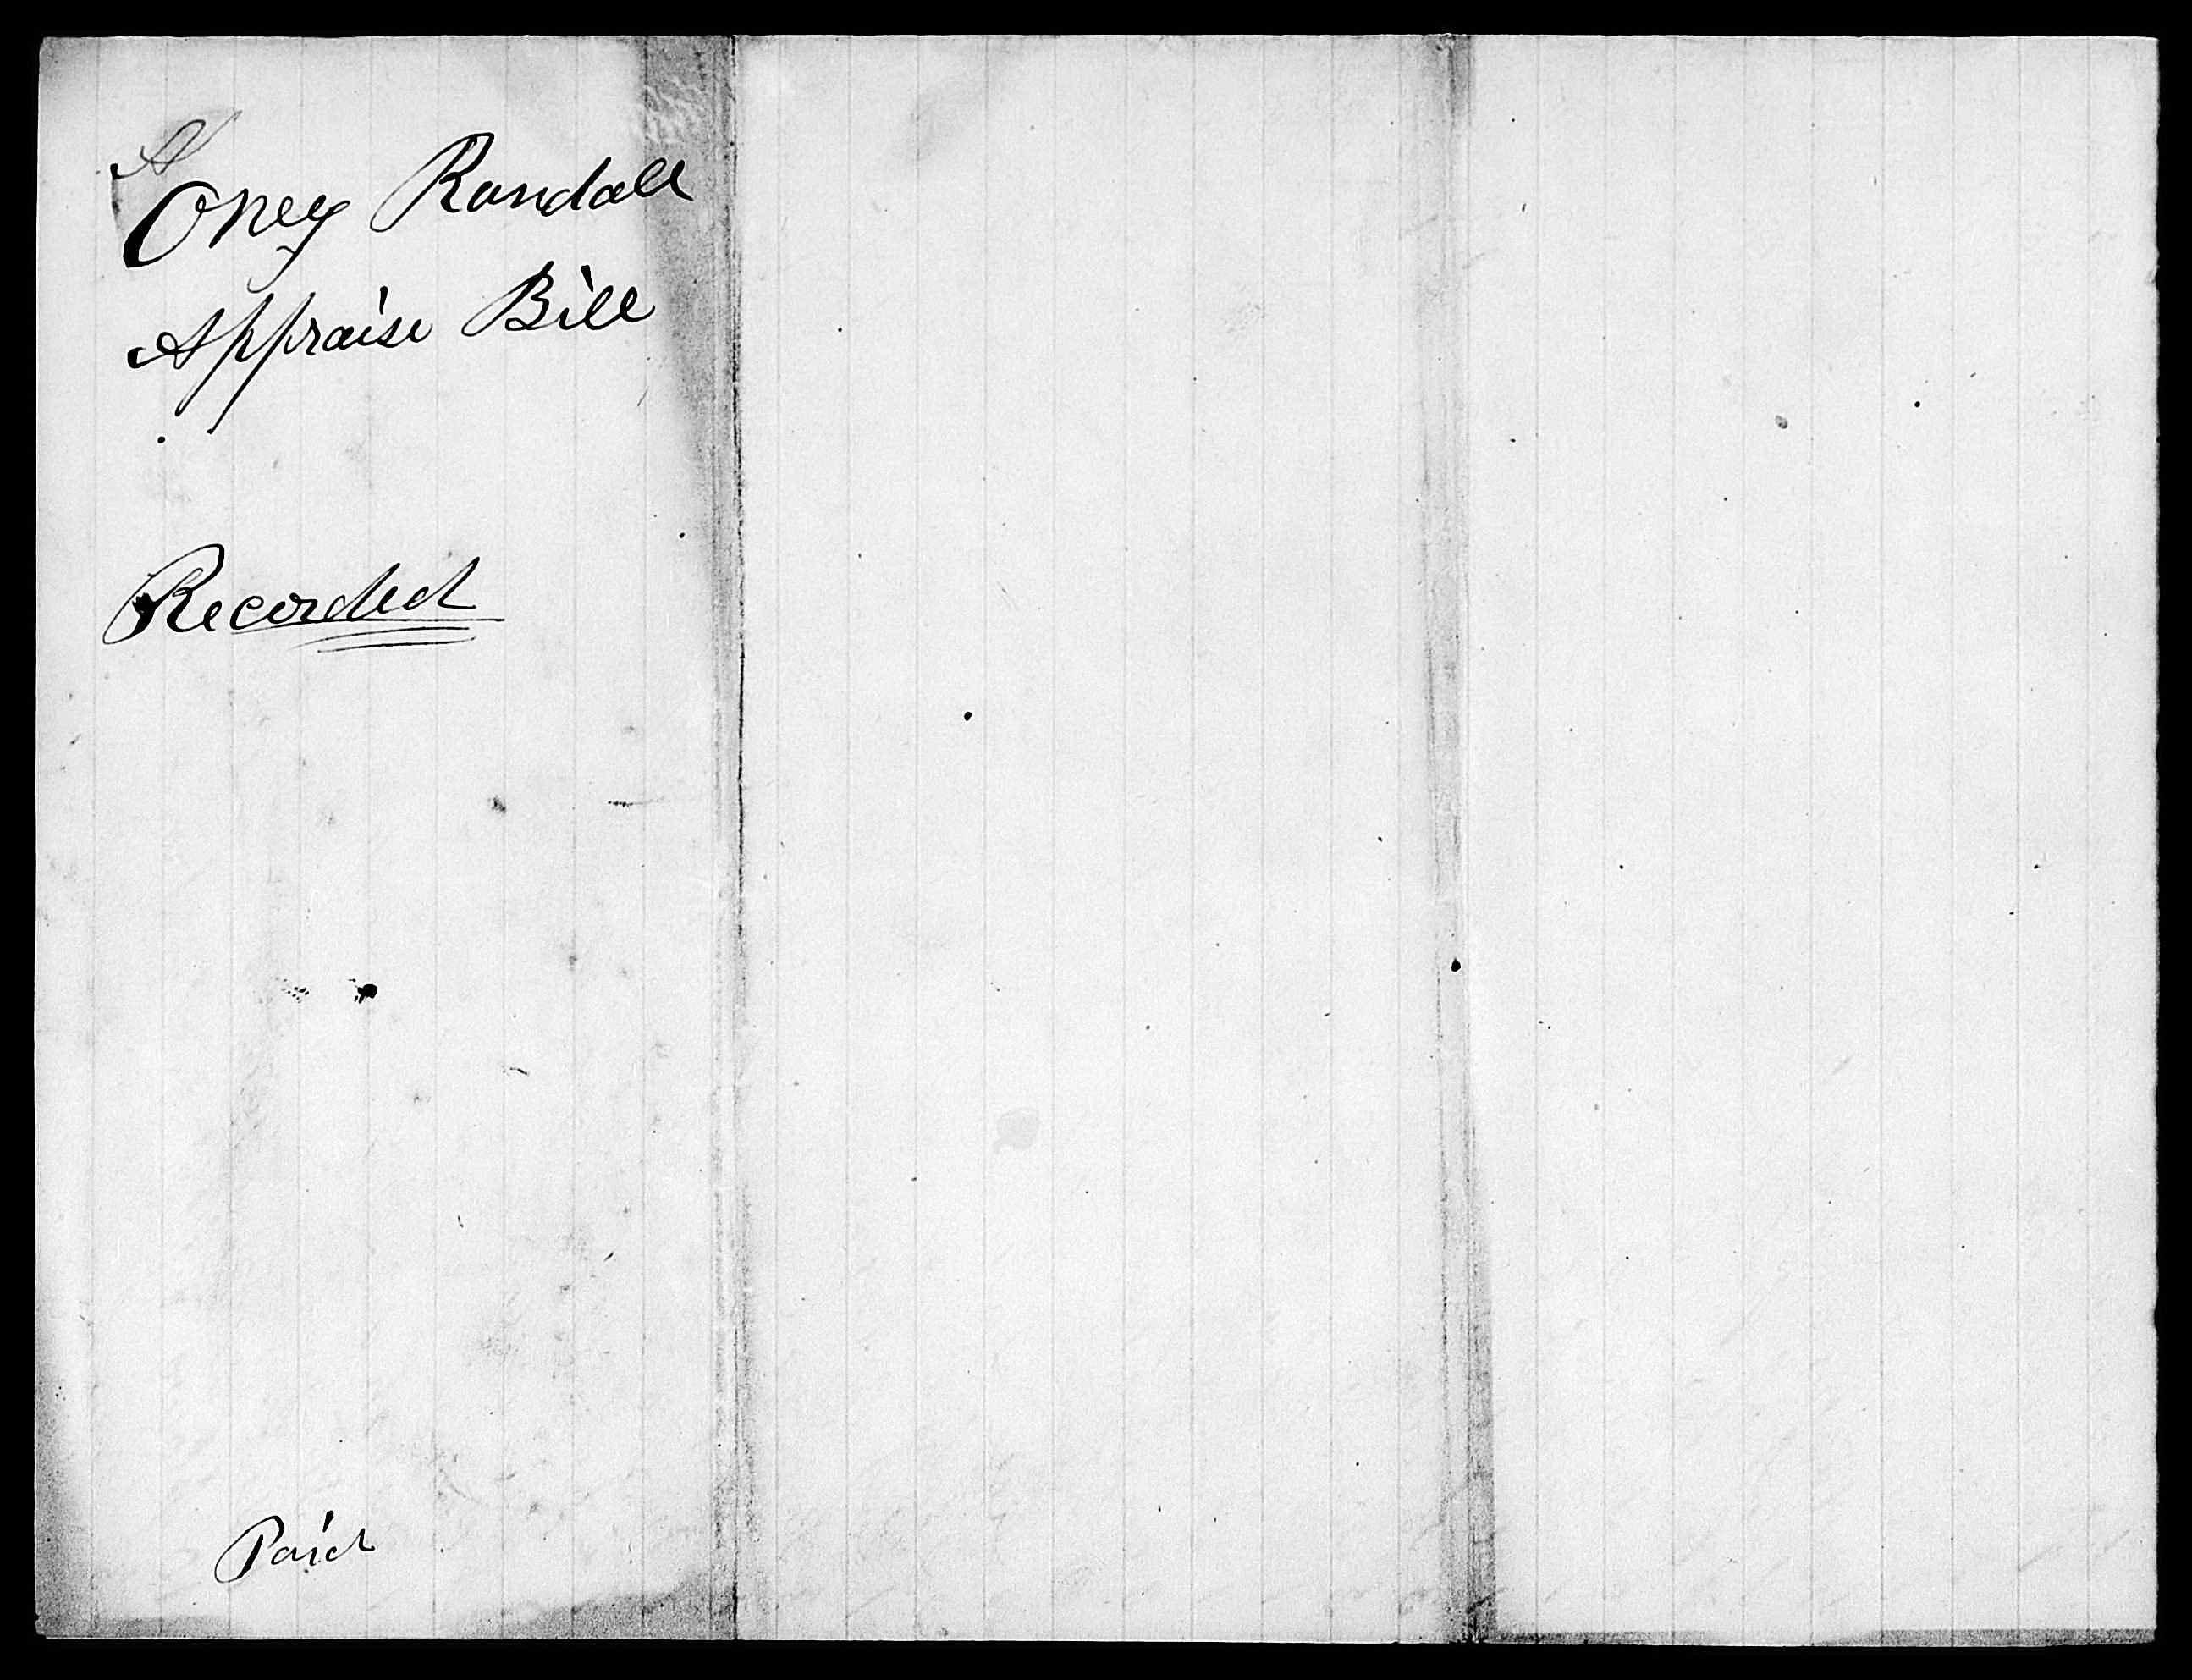 Oney Randall
Appraise Bill
Recorded
Paid